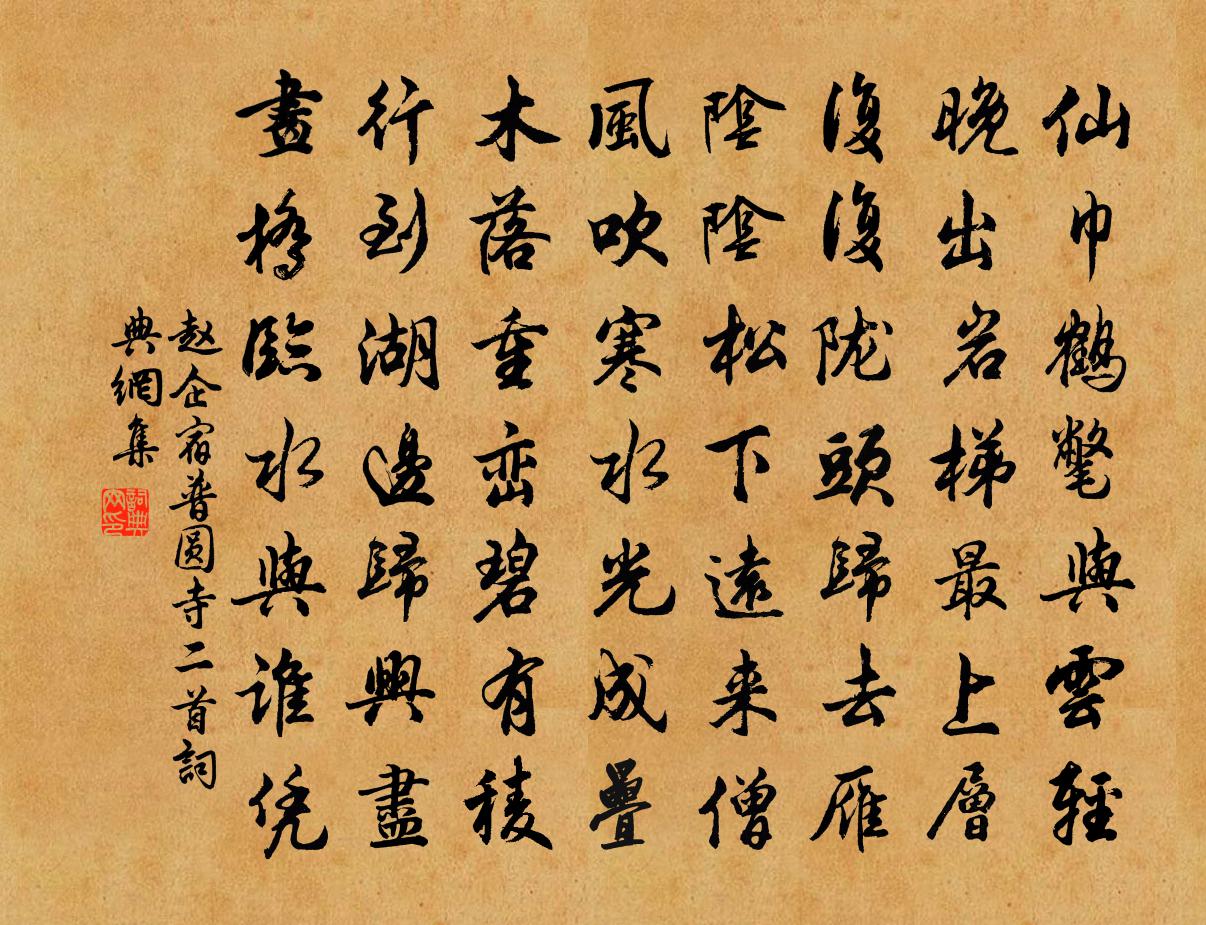 仙巾鶴氅與雲輕
晚出岩梯最上層
復復陇頭歸去雁
陰陰松下遠来僧
風吹寒水光成疊
木落重峦碧有稜
行到湖邊歸興盡
畫橋臨水與誰凭
赵企宿普圓寺二首詞
典網集
詞典
网印